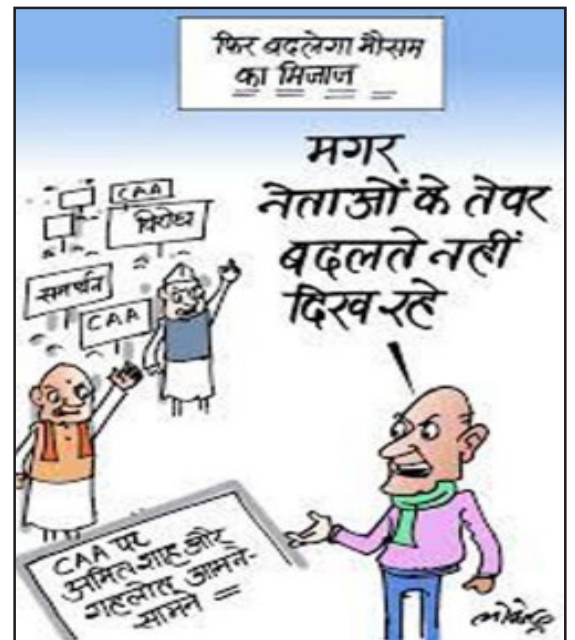 फिर बदलेगा मौसम
का मिजाज
मगर
नेताओं के तेवर
बदलते नहीं
दिख रहे
CAA
विरोध
समर्थन
CAA
CAA पर
अमित शाह और
गहलोत आमने-
सामने =